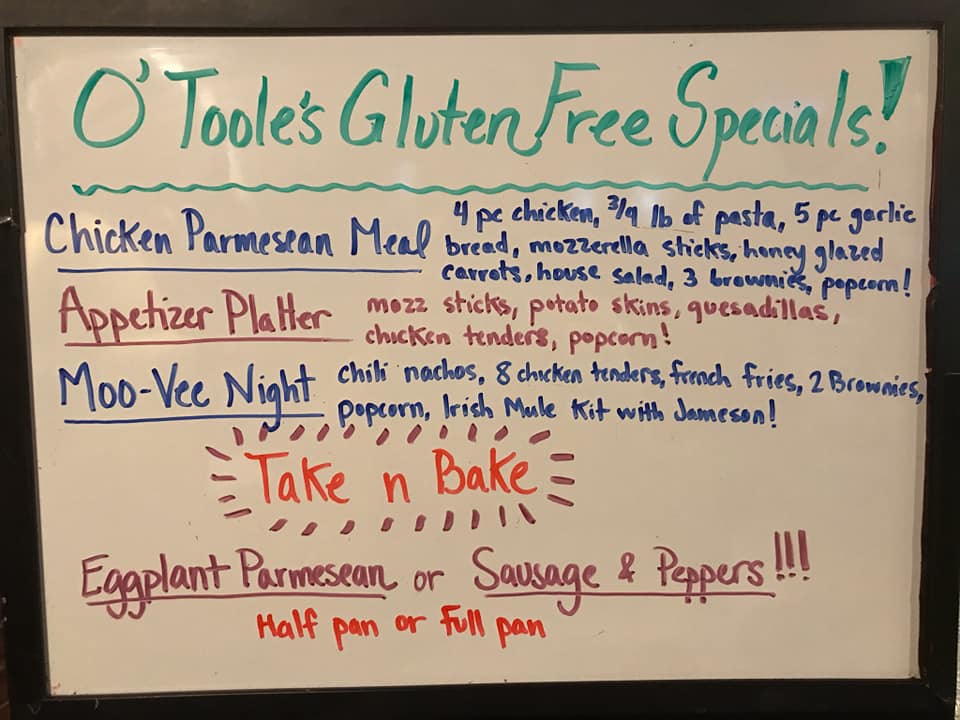 O'Toole's Gluten Free Specials!
Chicken Parmesean Meal 4 pc chicken, 3/4 lb of pasta, 5 pc garlic
bread, mozzerella sticks, honey glazed
carrots, house salad, 3 brownies, popcorn!
Appetizer Platter mozz sticks, potato skins, quesadillas,
chicken tenders, popcorn!
Moo-Vee Night chili nachos, 8 chicken tenders, french fries, 2 Brownies,
popcorn, Irish Mule Kit with Jameson!
Take n Bake
Eggplant Parmesean or Sausage & Peppers!!!
Half pan or Full pan